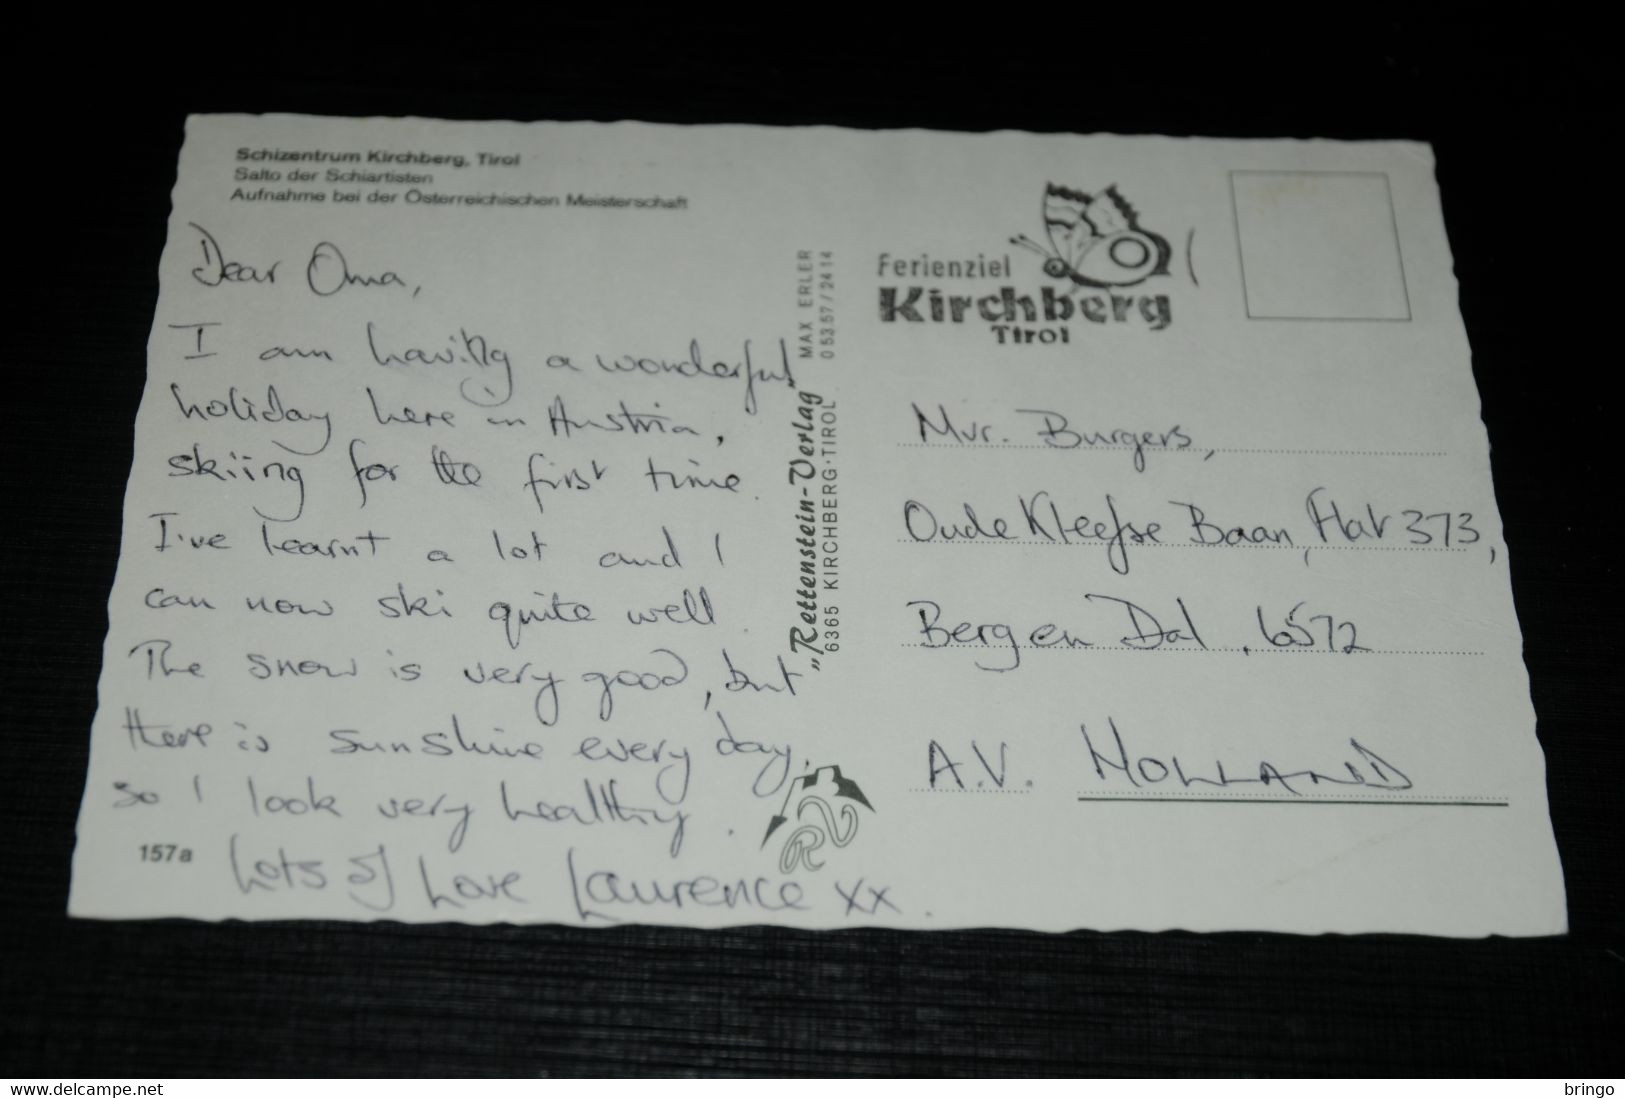 Schizentrum Kirchberg, Tirol
Salto der Schiartisten
Aufnahme bei der Österreichischen Meisterschaft
Dear Oma,
I am having a wonderful
holiday here in Austria,
skiing for the first time.
I've learnt a lot and I
can now ski quite well.
The snow is very good, but
there is sunshine every day,
so I look very healthy.
Lots of Love Laurence xx.
157a
„Rettenstein-Verlag" MAX ERLER
6365 KIRCHBERG·TIROL · 05357/2414
RV
Ferienziel
Kirchberg
Tirol
Mvr. Burgers,
Oude Kleefse Baan, Flat 373,
Berg en Dal, 6572
A.V. HOLLAND
www.delcampe.net
bringo